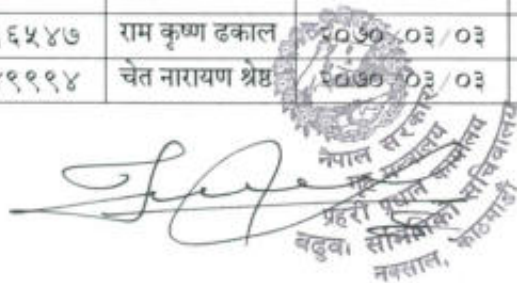 ६५४७ राम कृष्ण ढकाल २०७०/०३/०३
९९९४ चेत नारायण श्रेष्ठ २०७०/०३/०३
नेपाल सरकार
गृह मन्त्रालय
प्रहरी प्रधान कार्यालय
बढुवा समितिको सचिवालय
नक्साल, काठमाडौं